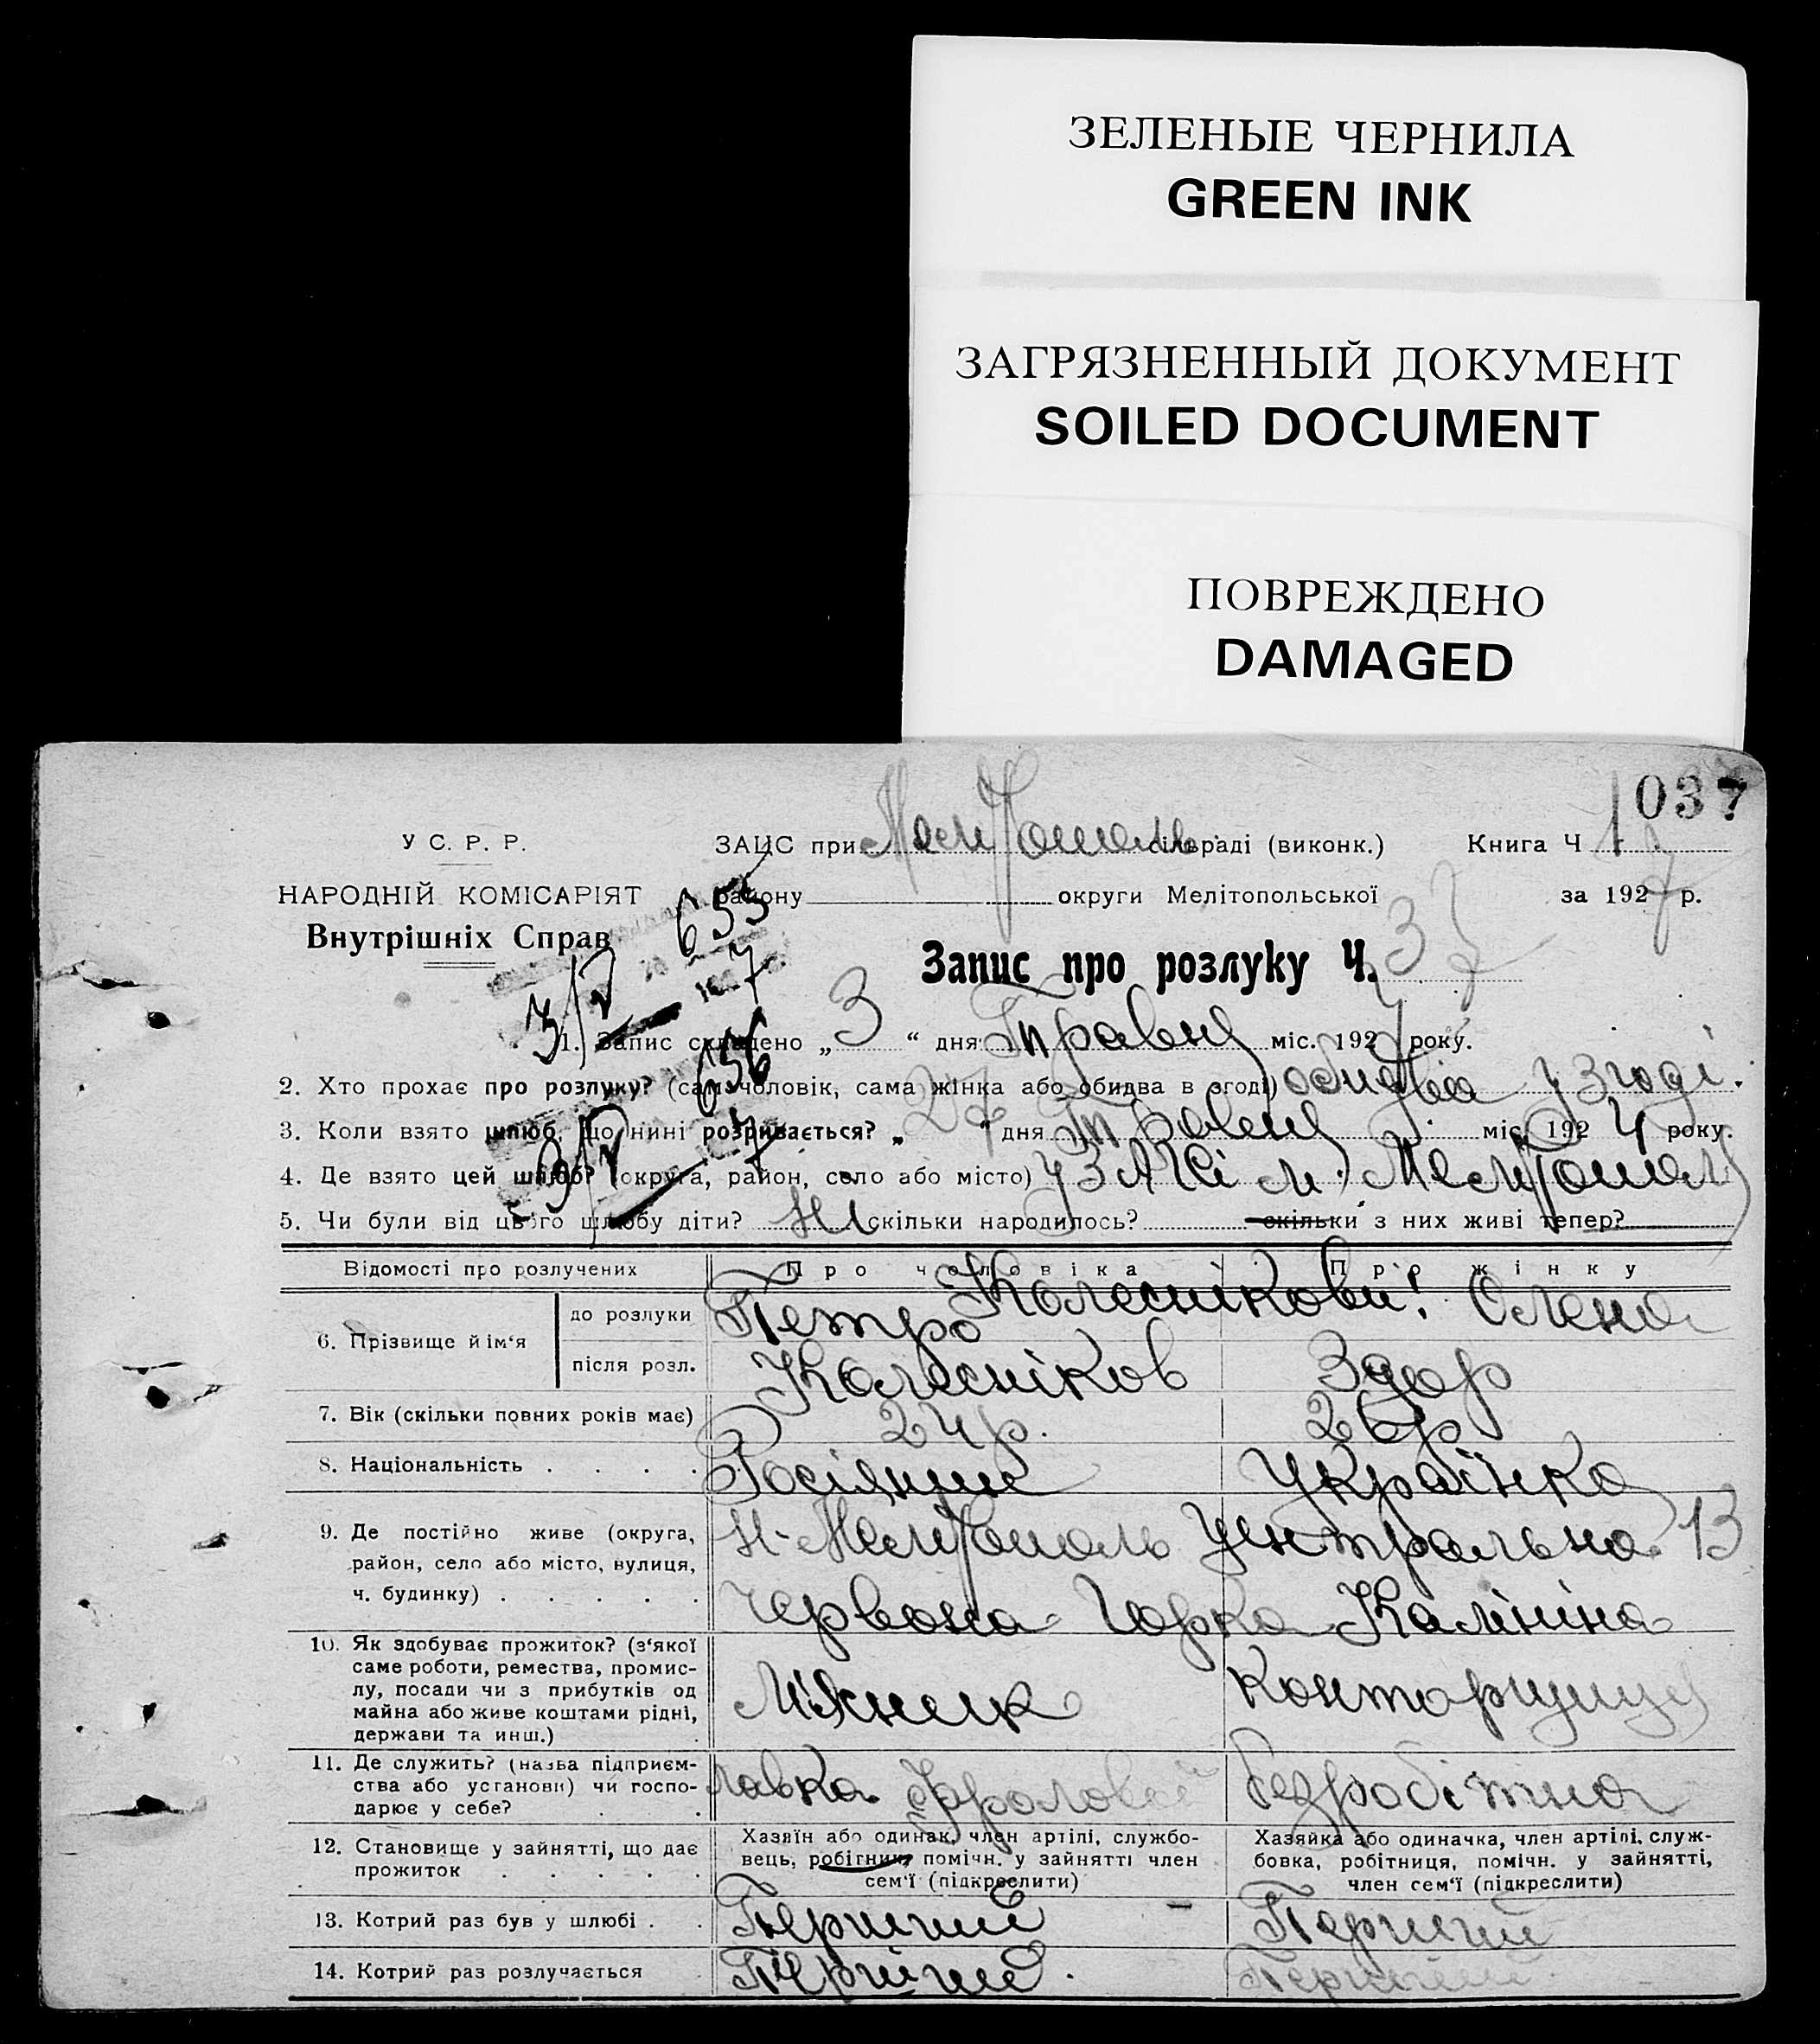 ЗЕЛЕНЫЕ ЧЕРНИЛА
GREEN INK
ЗАГРЯЗНЕННЫЙ ДОКУМЕНТ
SOILED DOCUMENT
ПОВРЕЖДЕНО
DAMAGED
037
У С. Р. Р.
ЗАЦС при Мелітополь сільраді (виконк.) Книга Ч 1
НАРОДНІЙ КОМІСАРІЯТ
району округи Мелітопольської за 1927 р.
Внутрішніх Справ
653
7
3/V
Запис про розлуку Ч. 37
1. Запис складено „ 3 “ дня Травня міс. 1927 року.
656
2. Хто прохає про розлуку? (сам чоловік, сама жінка або обидва в згоді) обидва у згоді.
3. Коли взято шлюб, що нині розривається? „ 27 “ дня Травня міс. 1924 року.
7
3/V
4. Де взято цей шлюб? (округа, район, село або місто) у ЗАГСі м. Мелітополь
5. Чи були від цього шлюбу діти? Ні скільки народилось? скільки з них живі тепер?
Відомості про розлучених Про чоловіка Про жінку
6. Прізвище й ім‘я до розлуки Петро Колеснікови: Олена
після розл. Колесніков Здор
7. Вік (скільки повних років має) 24 р. 26 р
8. Національність . . . . Росіянин Українка
9. Де постійно живе (округа, Н-Мелітополь Центральна 13
район, село або місто, вулиця,
ч. будинку) . . . . . Червона Горка Калініна
10. Як здобуває прожиток? (з‘якої
саме роботи, ремества, промис-
лу, посади чи з прибутків од
майна або живе коштами рідні,
держави та инш.)
Мясник Конторщиця
11. Де служить? (назва підприєм-
ства або установи) чи госпо-
дарює у себе? . .
лавка Фролової безробітна
12. Становище у зайнятті, що дає
прожиток . . . . .
Хазяїн або одинак, член артілі, службо-
вець, робітник, помічн. у зайнятті член
сем‘ї (підкреслити)
Хазяйка або одиначка, член артілі, служ-
бовка, робітниця, помічн. у зайнятті,
член сем‘ї (підкреслити)
13. Котрий раз був у шлюбі . . Перший - Перший
14. Котрий раз розлучається Перший. Перший.